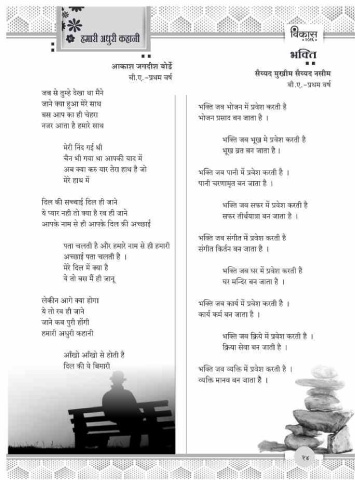 हमारी अधुरी कहानी
आकाश जगदीश बोर्डे
बी.ए.-प्रथम वर्ष
जब से तुम्हे देखा था मैंने
जाने क्या हुआ मेरे साथ
बस आप का ही चेहरा
नजर आता है हमारे साथ
मेरी निंद गई थी
चैन भी गया था आपकी याद में
अब क्या करु यार तेरा हाथ है जो
मेरे हाथ में
दिल की सच्चाई दिल ही जाने
ये प्यार नही तो क्या है रब ही जाने
आपके नाम से ही आपके दिल की अच्छाई
पता चलती है और हमारे नाम से ही हमारी
अच्छाई पता चलती है ।
मेरे दिल में क्या है
वे तो बस मैं ही जानू
लेकीन आगे क्या होगा
ये तो रब ही जाने
जाने कब पुरी होंगी
हमारी अधुरी कहानी
आँखो आँखो से होती है
दिल की ये बिमारी
विकास
भक्ति
सैय्यद मुखीम सैय्यद नसीम
बी.ए.-प्रथम वर्ष
भक्ति जब भोजन में प्रवेश करती है
भोजन प्रसाद बन जाता है ।
भक्ति जब भूख मे प्रवेश करती है
भूख व्रत बन जाता है ।
भक्ति जब पानी में प्रवेश करती है ।
पानी चरणामृत बन जाता है ।
भक्ति जब सफर में प्रवेश करती है
सफर तीर्थयात्रा बन जाता है ।
भक्ति जब संगीत में प्रवेश करती है
संगीत किर्तन बन जाता है ।
भक्ति जब घर में प्रवेश करती है
घर मन्दिर बन जाता है ।
भक्ति जब कार्य में प्रवेश करती है ।
कार्य कर्म बन जाता है ।
भक्ति जब क्रिये में प्रवेश करती है ।
क्रिया सेवा बन जाती है ।
भक्ति जब व्यक्ति में प्रवेश करती है ।
व्यक्ति मानव बन जाता है ।
१४